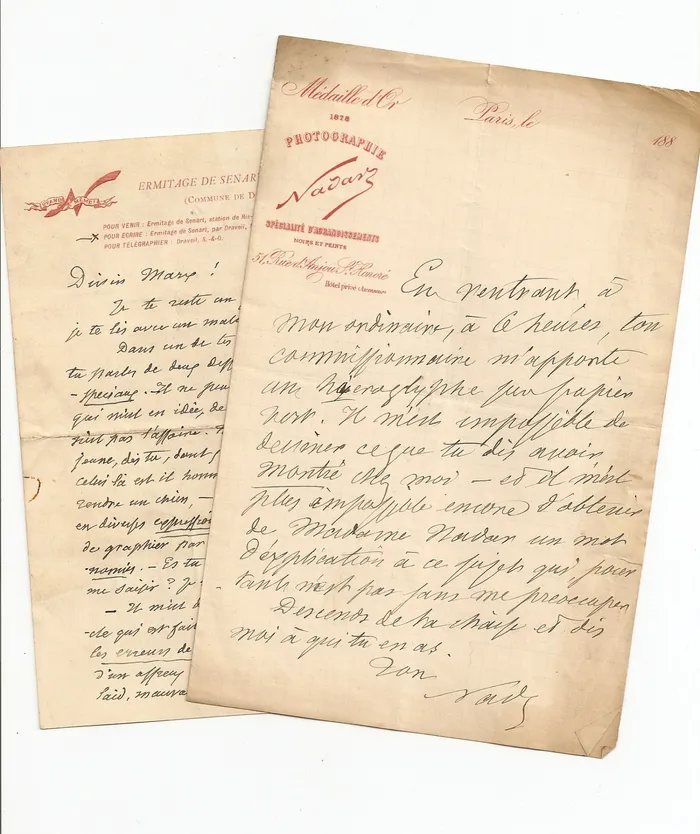 ERMITAGE DE SENART
(COMMUNE DE D
POUR VENIR : Ermitage de Senart, station de Ris-
POUR ECRIRE : Ermitage de Senart, par Draveil,
POUR TÉLÉGRAPHIER : Draveil, S.-&-O.
Marx !
Je te reste un
je te lis avec un
Dans un de tes
tu parles de deux
. Il ne peu
qui n'eut en idée, de
n'est pas l'affaire.
jeune, dis tu, dont
celui là est il
rendre un chien, -
en diverses expression
de graphier par
- Es tu
me saisir ? Je
- Il m'est
-cle qui est fait
les erreurs de
d'un affreux
laid, mauva
Médaille d'Or
1878
PHOTOGRAPHIE
Nadar
SPÉCIALITÉ D'AGRANDISSEMENTS
NOIRS ET PEINTS
51, Rue d'Anjou St. Honoré
Hôtel privé
Paris, le
188
En rentrant, à
mon ordinaire, à 6 heures, ton
commissionnaire m'apporte
un hieroglyphe sur papier
vert. Il m'est impossible de
deviner ce que tu dis avoir
montré chez moi - et il m'est
plus impossible encore d'obtenir
de Madame Nadar un mot
d'explication à ce sujet qui pour
-tant n'est pas sans me preoccuper
Descends de ta chaise et dis
moi à qui tu en as.
Ton
Nadar